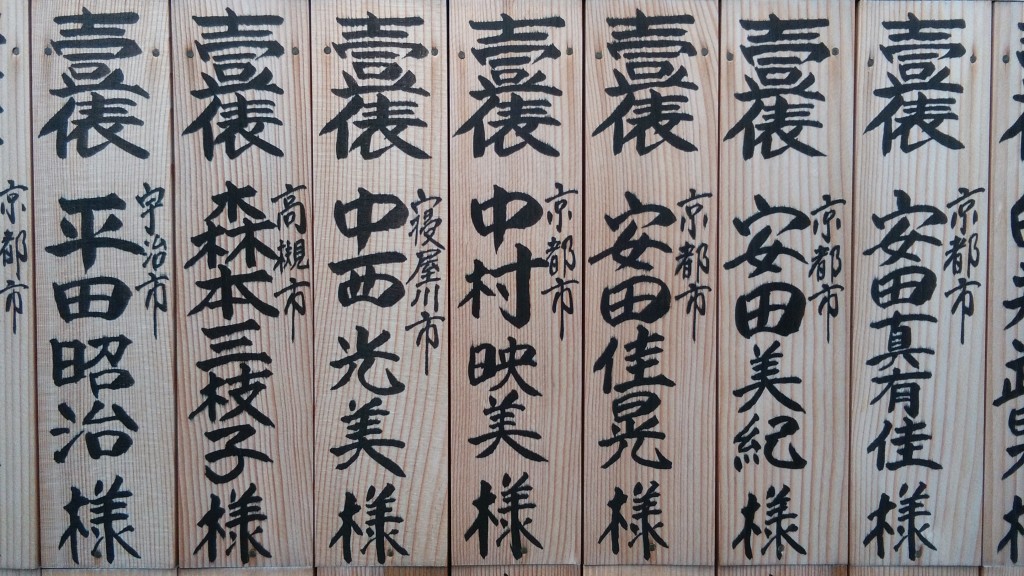 壹俵
京都市
安田真有佳様
壹俵
京都市
安田美紀様
壹俵
京都市
安田佳晃様
壹俵
京都市
中村映美様
壹俵
寝屋川市
中西光美様
壹俵
高槻市
森本三枝子様
壹俵
宇治市
平田昭治様
京都市